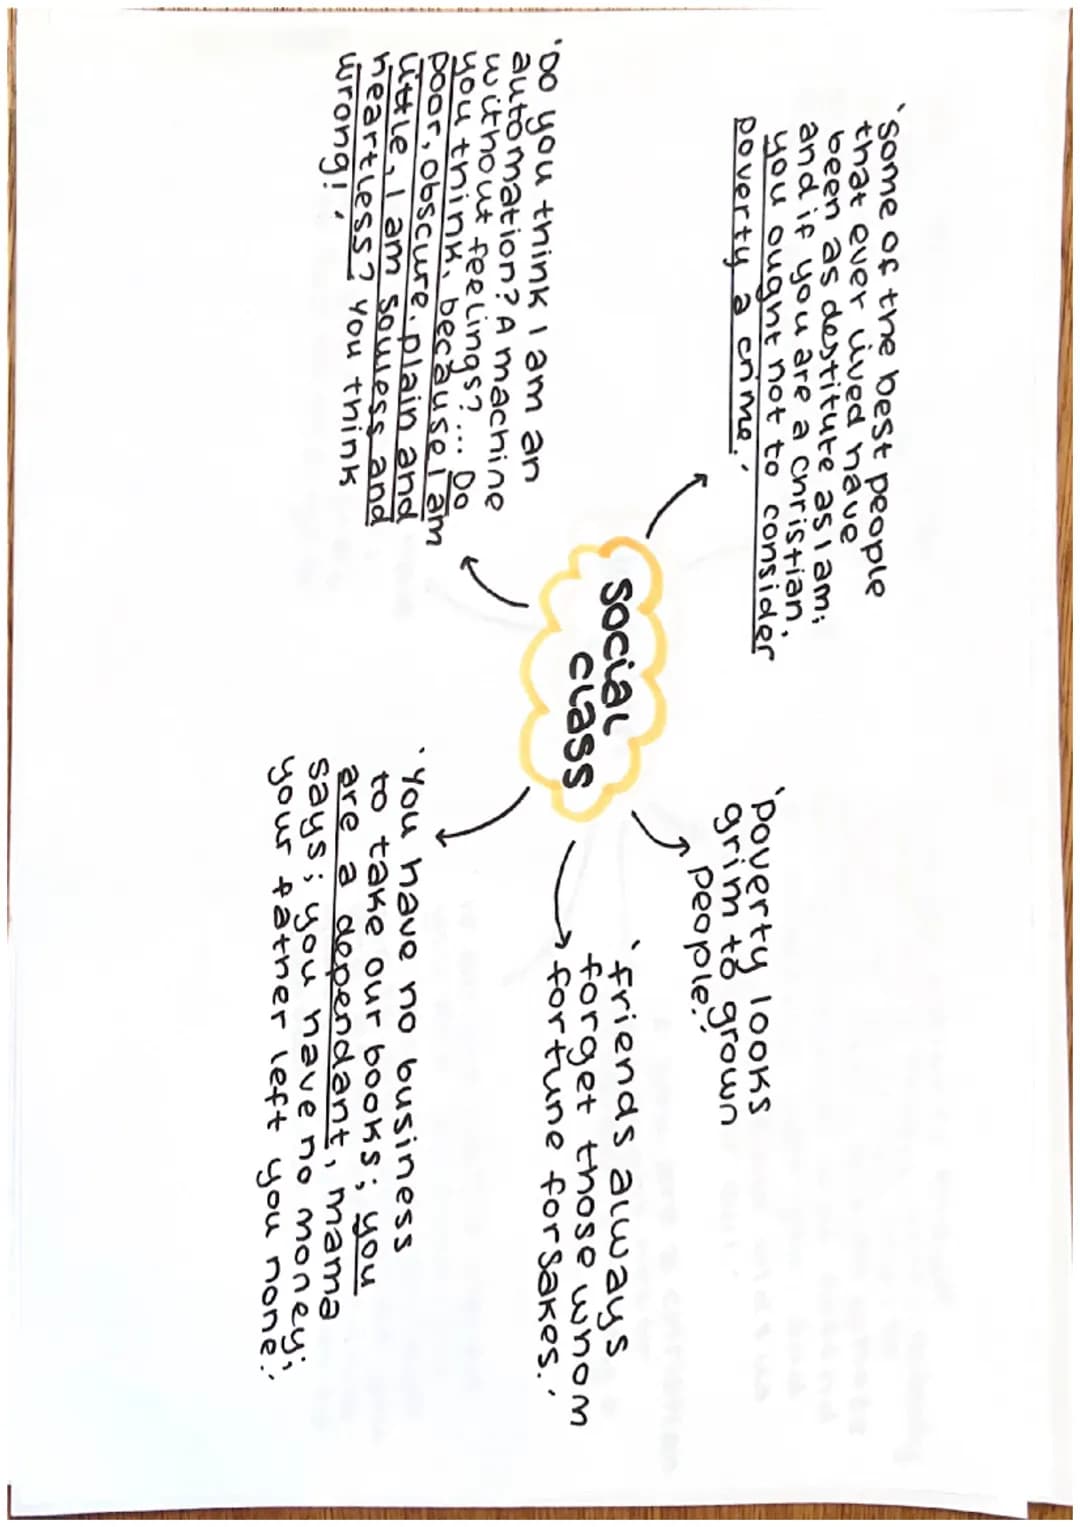 'some of the best people
that ever lived have
been as destitute as I am;
and if you are a christian,
you ought not to consider
poverty a crime.'
'poverty looks
grim to grown
people.'
social
class
'friends always
forget those whom
fortune forsakes.'
'Do you think I am an
automation? A machine
without feelings?... Do
you think, because I am
poor, obscure, plain and
little, I am souless and
heartless? You think
wrong!'
'You have no business
to take our books; you
are a dependant, mama
says; you have no money;
your father left you none.'